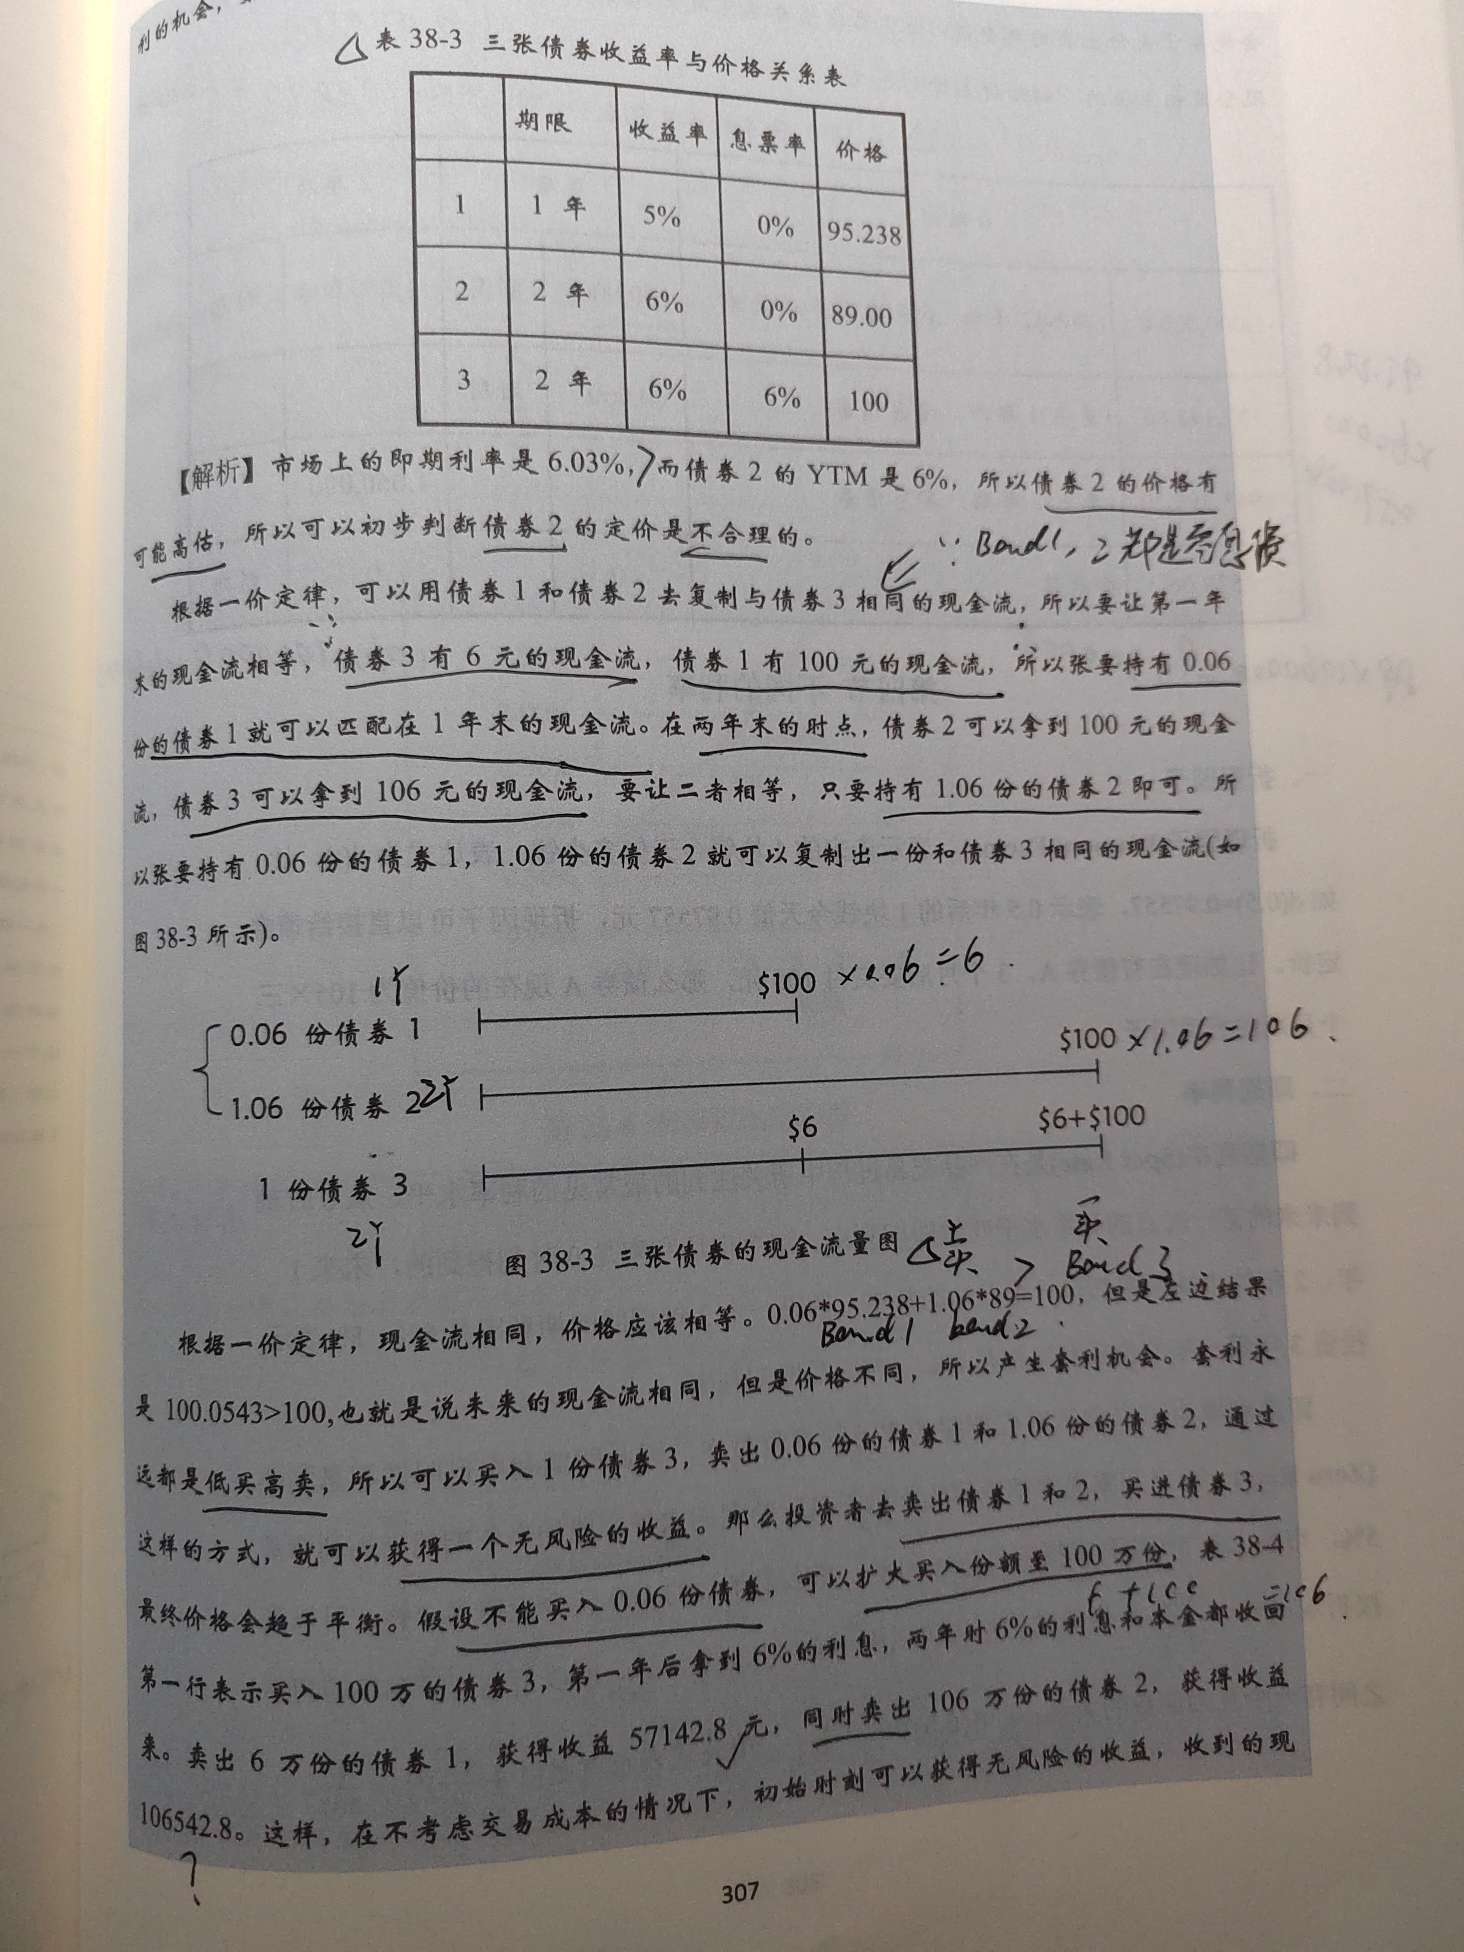 利的机会，
△ 表 38-3 三张债券收益率与价格关系表
期限 收益率 息票率 价格
1 1 年 5% 0% 95.238
2 2 年 6% 0% 89.00
3 2 年 6% 6% 100
【解析】市场上的即期利率是 6.03%，而债券 2 的 YTM 是 6%，所以债券 2 的价格有
可能高估，所以可以初步判断债券 2 的定价是不合理的。
∵ Bond1，2 都是零息债
根据一价定律，可以用债券 1 和债券 2 去复制与债券 3 相同的现金流，所以要让第一年
末的现金流相等，债券 3 有 6 元的现金流，债券 1 有 100 元的现金流，所以张要持有 0.06
份的债券 1 就可以匹配在 1 年末的现金流。在两年末的时点，债券 2 可以拿到 100 元的现金
流，债券 3 可以拿到 106 元的现金流，要让二者相等，只要持有 1.06 份的债券 2 即可。所
以张要持有 0.06 份的债券 1，1.06 份的债券 2 就可以复制出一份和债券 3 相同的现金流(如
图 38-3 所示)。
1个 $100 ×0.06=6
0.06 份债券 1
$100 ×1.06=106
1.06 份债券 2
$6 $6+$100
1 份债券 3
图 38-3 三张债券的现金流量图
卖 > 买 Bond 3
根据一价定律，现金流相同，价格应该相等。0.06*95.238+1.06*89=100，但是左边结果
Bond1 bond2
是 100.0543>100,也就是说未来的现金流相同，但是价格不同，所以产生套利机会。套利永
远都是低买高卖，所以可以买入 1 份债券 3，卖出 0.06 份的债券 1 和 1.06 份的债券 2，通过
这样的方式，就可以获得一个无风险的收益。那么投资者去卖出债券 1 和 2，买进债券 3，
最终价格会趋于平衡。假设不能买入 0.06 份债券，可以扩大买入份额至 100 万份，表 38-4
6 +100 =106
第一行表示买入 100 万的债券 3，第一年后拿到 6%的利息，两年时 6%的利息和本金都收回
来。卖出 6 万份的债券 1，获得收益 57142.8 元，同时卖出 106 万份的债券 2，获得收益
106542.8。这样，在不考虑交易成本的情况下，初始时刻可以获得无风险的收益，收到的现
?
307